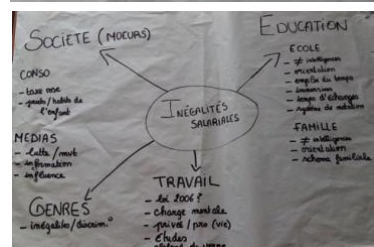 SOCIETE (MOEURS)
CONSO
- taxe rose
- jouets / habits de
l'enfant
MEDIAS
- lutte / mvt
- information
- influence
GENRES
- inégalités / discrim.°
INÉGALITÉS
SALARIALES
TRAVAIL
- loi 2006 ?
- charge mentale
- privé / pro (vie)
- Études
EDUCATION
ECOLE
- ≠ intelligences
- orientation
- emploi du temps
- temps d'échanges
- système de notation
FAMILLE
- ≠ intelligences
- orientation
- schéma familiale